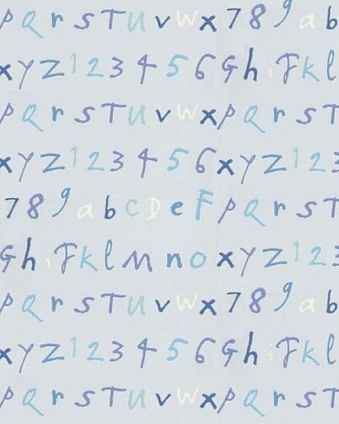 P Q r s T u v w x 7 8 9 a b
x y z 1 2 3 4 5 6 G h i J k l
P Q r s T u v w x P Q r s T
x y z 1 2 3 4 5 6 x y z 1 2 3
7 8 9 a b c D e F P Q r s T
G h i J k l m n o x y z 1 2 3
P Q r s T u v w x 7 8 9 a b
x y z 1 2 3 4 5 6 G h i J k l
P Q r s T u v w x P Q r s T